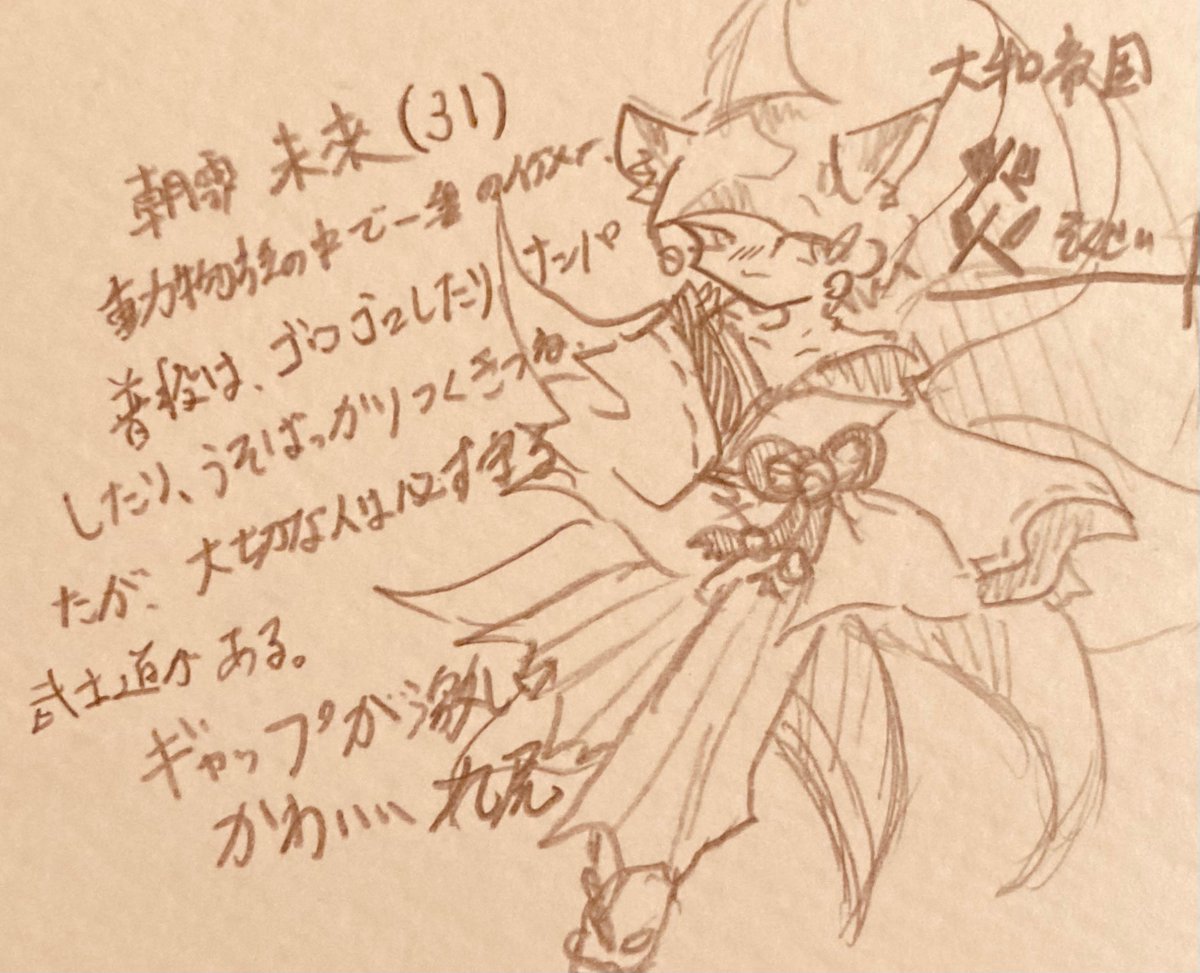 朝雾 未来 (31)
動物族の中で一番のイケメン。
普段は、ゴロゴロしたりナンパ
したり、うそばっかりつくきつね
だが、大切な人は必ず守る
武士道がある。
ギャップが激しい
かわいい九尾
大和帝国
父